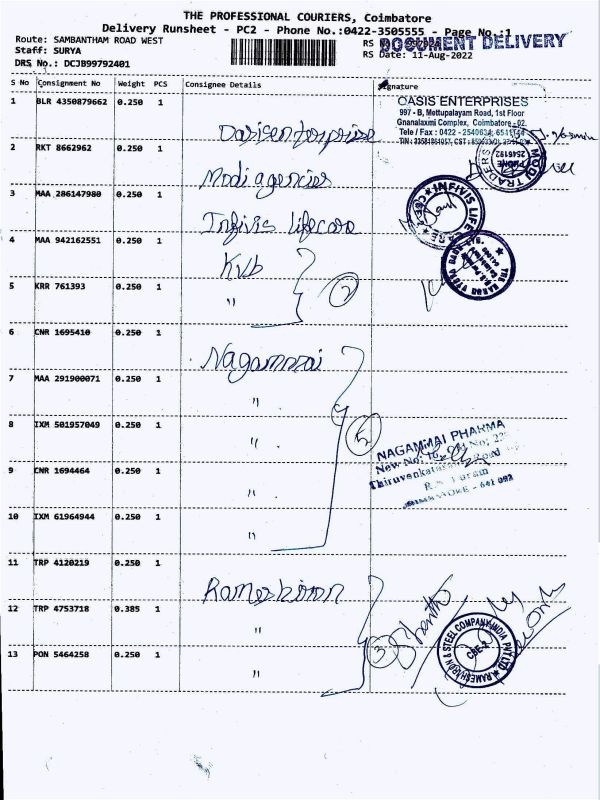 THE PROFESSIONAL COURIERS, Coimbatore
Delivery Runsheet - PC2 - Phone No.:0422-3505555 - Page No.:1
Route: SAMBANTHAM ROAD WEST
Staff: SURYA
DRS No.: DCJB99792401
RS No
DOCUMENT DELIVERY
RS Date: 11-Aug-2022
S No Consignment No Weight PCS Consignee Details Signature
1 BLR 4350879662 0.250 1
OASIS ENTERPRISES
997 - B, Mettupalayam Road, 1st Floor
Gnanalaxmi Complex, Coimbatore - 02.
Tele / Fax : 0422 - 2540634,
2 RKT 8662962 0.250 1 Modi agencies
MODI TRADERS
PHONE
2546192
3 MAA 286147980 0.250 1 Infivis lifecare
INFIVIS LIFE CARE
CBE-2
4 MAA 942162551 0.250 1 Kvb
2
THE KARUR VYSYA BANK LTD.
5 KRR 761393 0.250 1 "
6 CNR 1695410 0.250 1 Nagammai
7 MAA 291900071 0.250 1 "
8 IXM 501957049 0.250 1 "
5
NAGAMMAI PHARMA
New No: 16, Old No: 22
Road
9 CNR 1694464 0.250 1 "
R.S. Puram
COIMBATORE - 641 002
10 IXM 61964944 0.250 1 "
11 TRP 4120219 0.250 1 Rameshiron
12 TRP 4753718 0.385 1 "
3
RAMESH IRON & STEEL COMPANY INDIA PVT LTD
CBE-2
13 PON 5464258 0.250 1 "